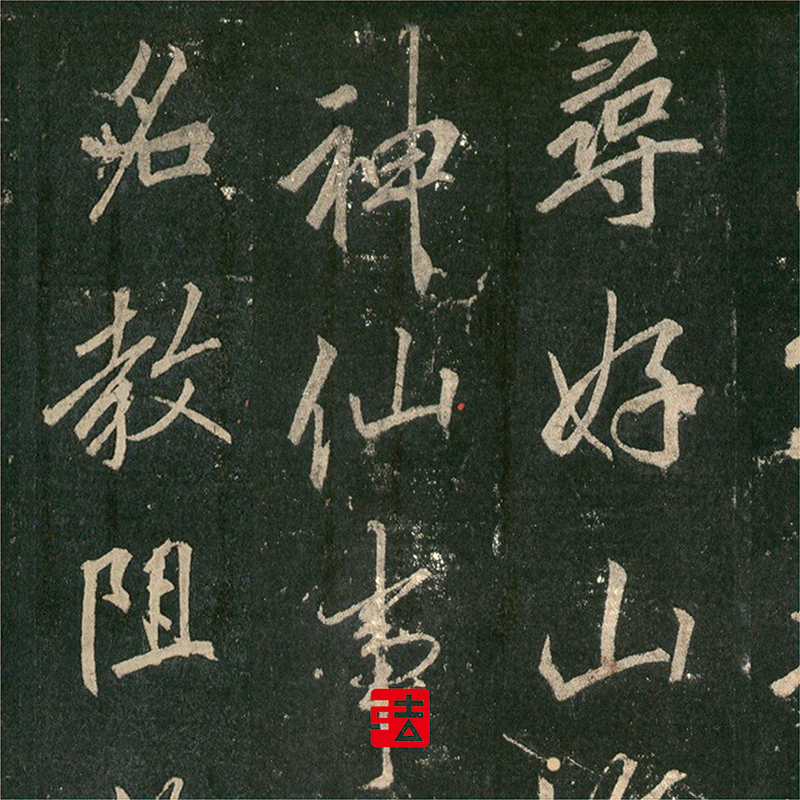 尋好山
神仙事
名教阻
法